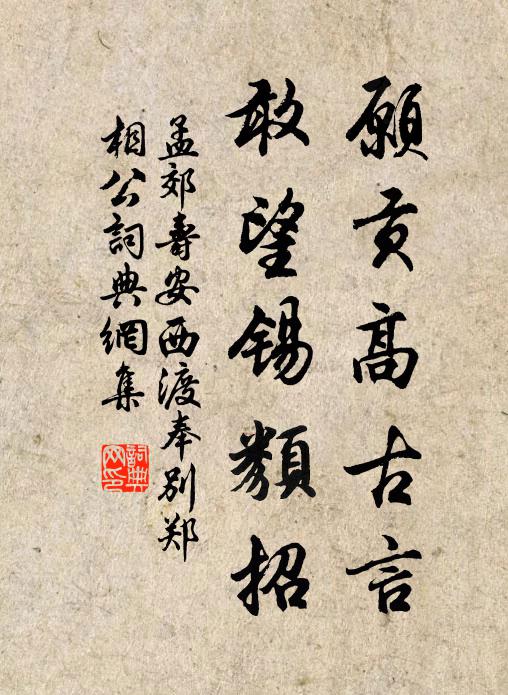 願貢高古言
敢望錫類招
孟郊壽安西渡奉別郑
相公詞典網集
詞典网印